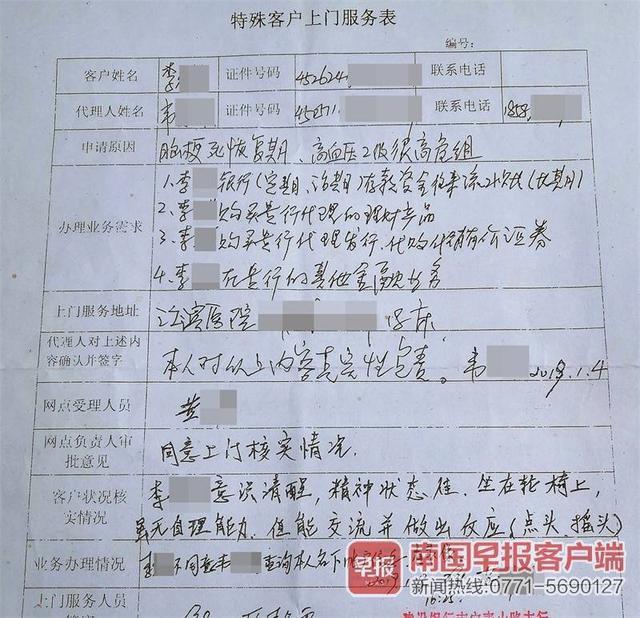 特殊客户上门服务表
编号:
客户姓名 李 证件号码 452624 联系电话
代理人姓名 韦 证件号码 45 联系电话 185
申请原因 脑梗死恢复期、高血压2级很高危组
1.李 银行(定期、活期)存款资金往来流水
2.李 购买贵行代理的理财产品
办理业务需求
3.李 购买贵行代理发行、代购 有价证券
4.李 在贵行的其他金融业务
上门服务地址 江滨医院 号床
代理人对上述内
容确认并签字
本人对以上内容真实性负责。韦 2019.1.4
网点受理人员 黄
网点负责人审
批意见
同意上门核实情况.
客户状况核
实情况
李 意识清醒,精神状态佳.坐在轮椅上,
虽无自理能力.但能交流并做出反应(点头、摇头)
业务办理情况 李 不同意韦 查询本人名下
早报 南国早报客户端
新闻热线:0771-5690127
上门服务人员